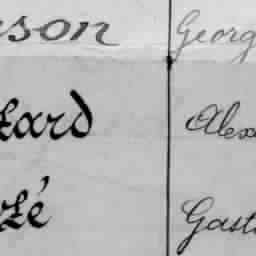 son Georg
ard Alex
é Gast